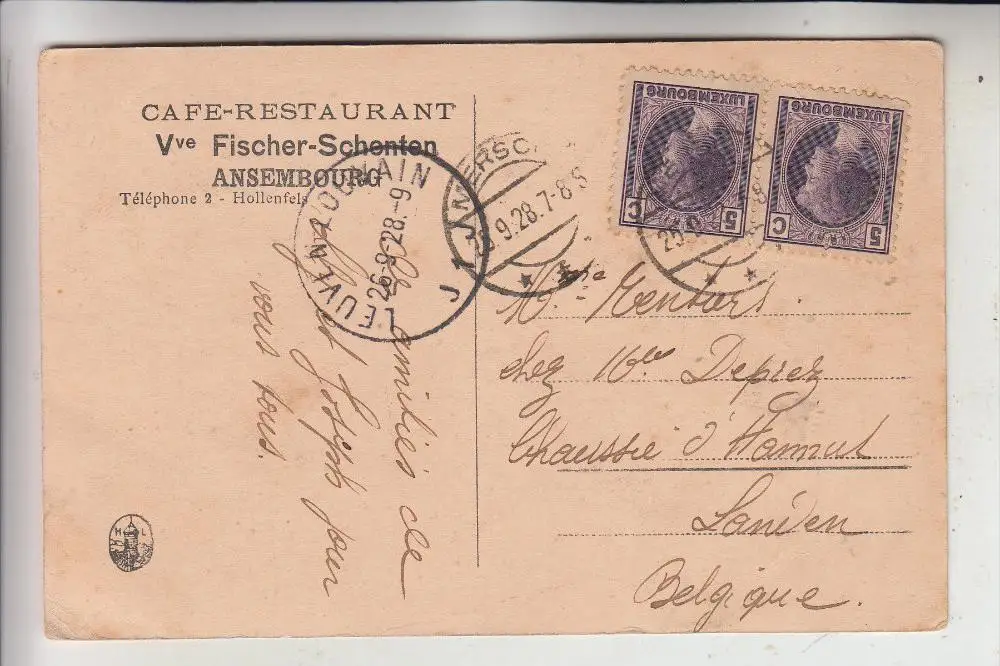 CAFE-RESTAURANT
Vve Fischer-Schonten
ANSEMBOURG
Téléphone 2 - Hollenfels
LEUVEN 1 LOUVAIN
26-9-28.-9
J 1 J
MERSC
25.9.28.7-8 S
LUXEMBOURG
5 C
LUXEMBOURG
5 C
amitiés de
et Joseph pour
vous tous.
Mme
chez Mlle Deprez
Chaussée d'Hannut
Landen
Belgique.
H L